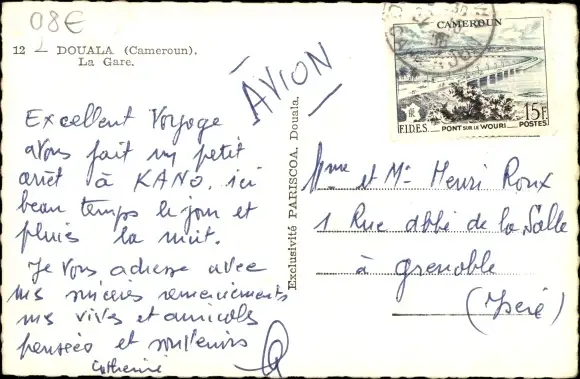 08€
12 — DOUALA (Cameroun).
La Gare.
AVION
Excellent Voyage
avons fait un petit
arrêt à KANO, ici
beau temps le jour et
pluies la nuit.
Je vous adresse avec
mes sincères remerciements
mes vives et amicales
pensées et souvenirs
Catherine
Exclusivité PARISCOA, Douala.
CAMEROUN
15F
F.I.D.E.S. PONT SUR LE WOURI POSTES
Mme et Mr Henri Roux
1 Rue abbé de la Salle
à Grenoble
(Isère)